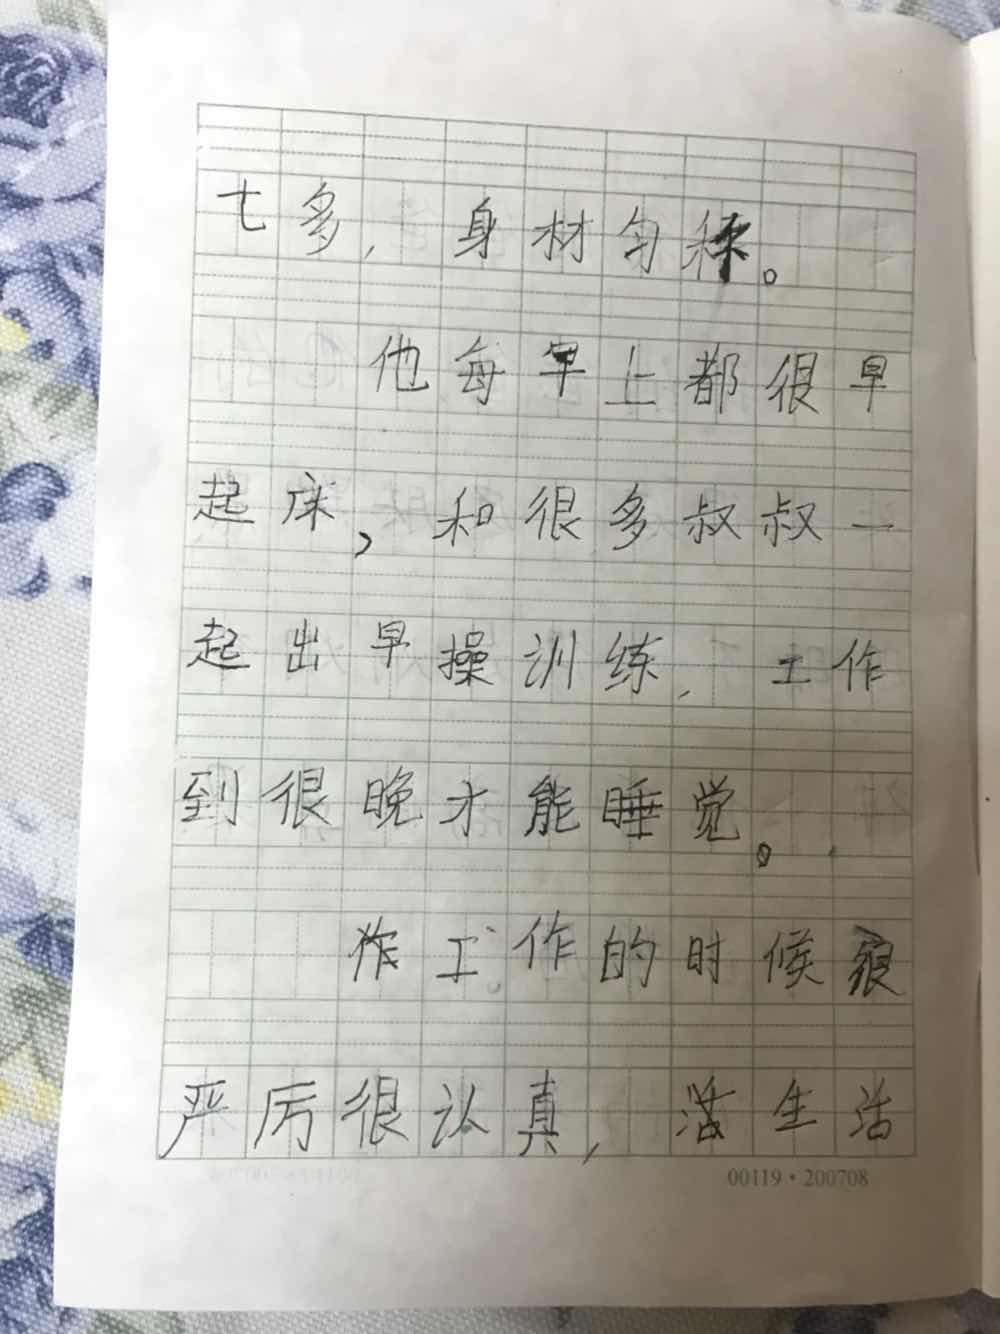 七多，身材匀称。
他每早上都很早
起床，和很多叔叔一
起出早操训练，工作
到很晚才能睡觉。
作工作的时候很
严厉很认真，活生活
00119·200708